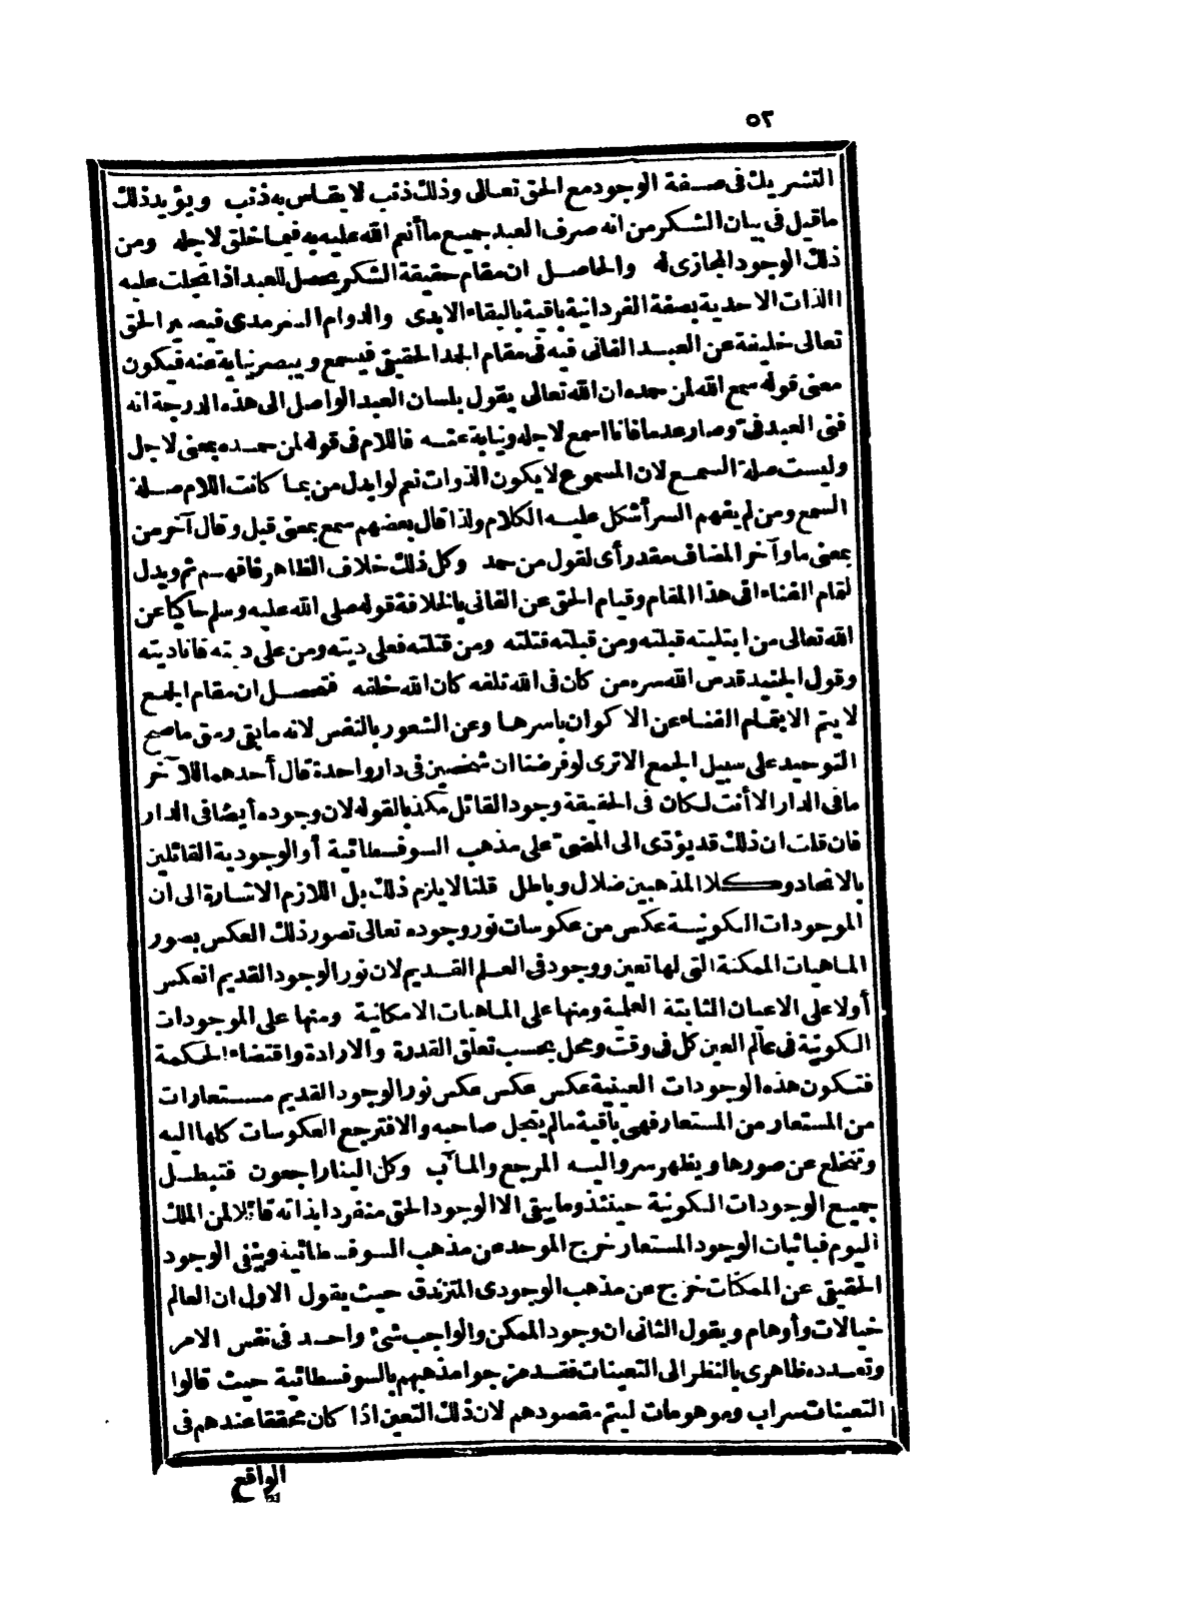 ٥٢
التشريك فى صفة الوجود مع الحق تعالى وذلك ذنب لا يقاس به ذنب ويؤيد ذلك
ما قيل فى بيان الشكر من انه صرف العبد جميع ما أنعم الله عليه به فيما خلق لاجله ومن
ذلك الوجود المجازى له والحاصل ان مقام حقيقة الشكر يحصل للعبد اذا تجلت عليه
الذات الاحدية بصفة الفردانية باقية بالبقاء الابدى والدوام السرمدى فيصير الحق
تعالى خليفة عن العبد الفانى فيه فى مقام الحمد الحقيقى فيسمع ويبصر نيابة عنه فيكون
معنى قوله سمع الله لمن حمده ان الله تعالى يقول بلسان العبد الواصل الى هذه الدرجة انه
فنى العبد فىّ وصار عدما فانا اسمع لاجله ونيابة عنه فاللام فى قوله لمن حمده بمعنى لاجل
وليست صلة السمع لان المسموع لا يكون الذوات نعم لو ابدل من بما كانت اللام صلة
السمع ومن لم يفهم السر أشكل عليه الكلام ولذا قال بعضهم سمع بمعنى قبل وقال آخر من
بمعنى ما وآخر المضاف مقدر أى لقول من حمد وكل ذلك خلاف الظاهر فافهم ثم ويدل
لقام الفناء اقى هذا المقام وقيام الحق عن الفانى بالخلافة قوله صلى الله عليه وسلم حاكيا عن
الله تعالى من ابتليته قبلته ومن قبلته قتلته ومن قتلته فعلى ديته ومن على ديته فانا ديته
وقول الجنيد قدس الله سره من كان فى الله تلفه كان الله خلفه فتحصل ان مقام الجمع
لا يتم الا بتمام الفناء عن الاكوان باسرها وعن الشعور بالنفس لانه ما بقى رمق ما صح
التوحيد على سبيل الجمع الاترى لو فرضنا ان شخصين فى دار واحدة قال أحدهما للآخر
ما فى الدار الا أنت لكان فى الحقيقة وجود القائل مكذبا لقوله لان وجوده أيضا فى الدار
فان قلت ان ذلك قد يؤدى الى المضىّ على مذهب السوفسطائية أو الوجودية القائلين
بالاتحاد وكلا المذهبين ضلال وباطل قلنا لا يلزم ذلك بل اللازم الاشارة الى ان
الموجودات الكونية عكس من عكوسات نور وجوده تعالى تصور ذلك العكس بصور
الماهيات الممكنة التى لها تعين ووجود فى العلم القديم لان نور الوجود القديم انعكس
أولا على الاعيان الثابتة العلمية ومنها على الماهيات الامكانية ومنها على الموجودات
الكونيّة فى عالم العين كل فى وقت ومحل بحسب تعلق القدرة والارادة واقتضاء الحكمة
فتكون هذه الوجودات العينية عكس عكس عكس نور الوجود القديم مستعارات
من المستعار من المستعار فهى باقية مالم يتجل صاحبه والا فترجع العكوسات كلها اليه
وتنخلع عن صورها ويظهر سر واليه المرجع والمآب وكل الينا راجعون فتبطل
جميع الوجودات الكونية حينئذ وما يبقى الا الوجود الحق منفردا بذاته قائلا لمن الملك
اليوم فباثبات الوجود المستعار خرج الموحد عن مذهب السوفسطائية وبنفى الوجود
الحقيقى عن الممكنات خرج عن مذهب الوجودى المتزندق حيث يقول الاول ان العالم
خيالات وأوهام ويقول الثانى ان وجود الممكن والواجب شئ واحد فى نفس الامر
وتعدده ظاهرى بالنظر الى التعينات فقد مزجوا مذهبهم بالسوفسطائية حيث قالوا
التعينات سراب وموهومات ليتم مقصودهم لان ذلك التعين اذا كان محققا عندهم فى
الواقع